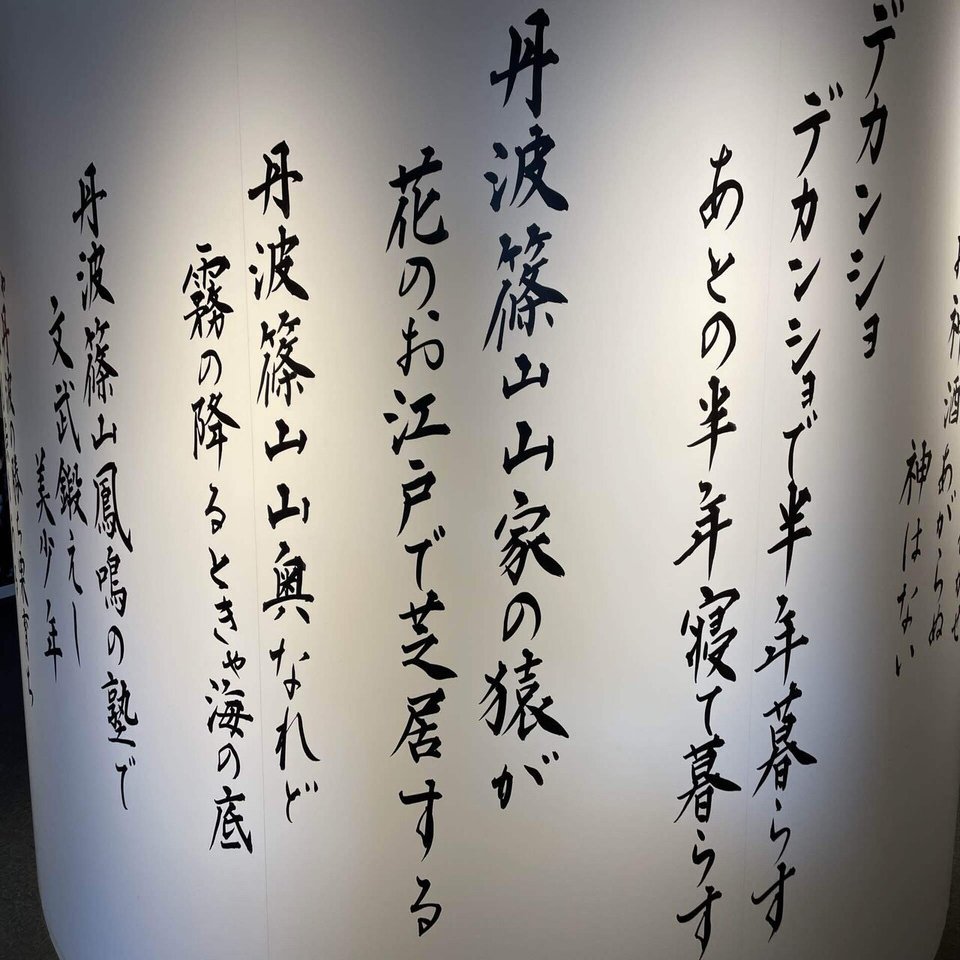 神酒あがらぬ
神はない
デカンショ
デカンショで半年暮らす
あとの半年寝て暮らす
丹波篠山山家の猿が
花のお江戸で芝居する
丹波篠山山奥なれど
霧の降るときゃ海の底
丹波篠山鳳鳴の塾で
文武鍛えし
美少年